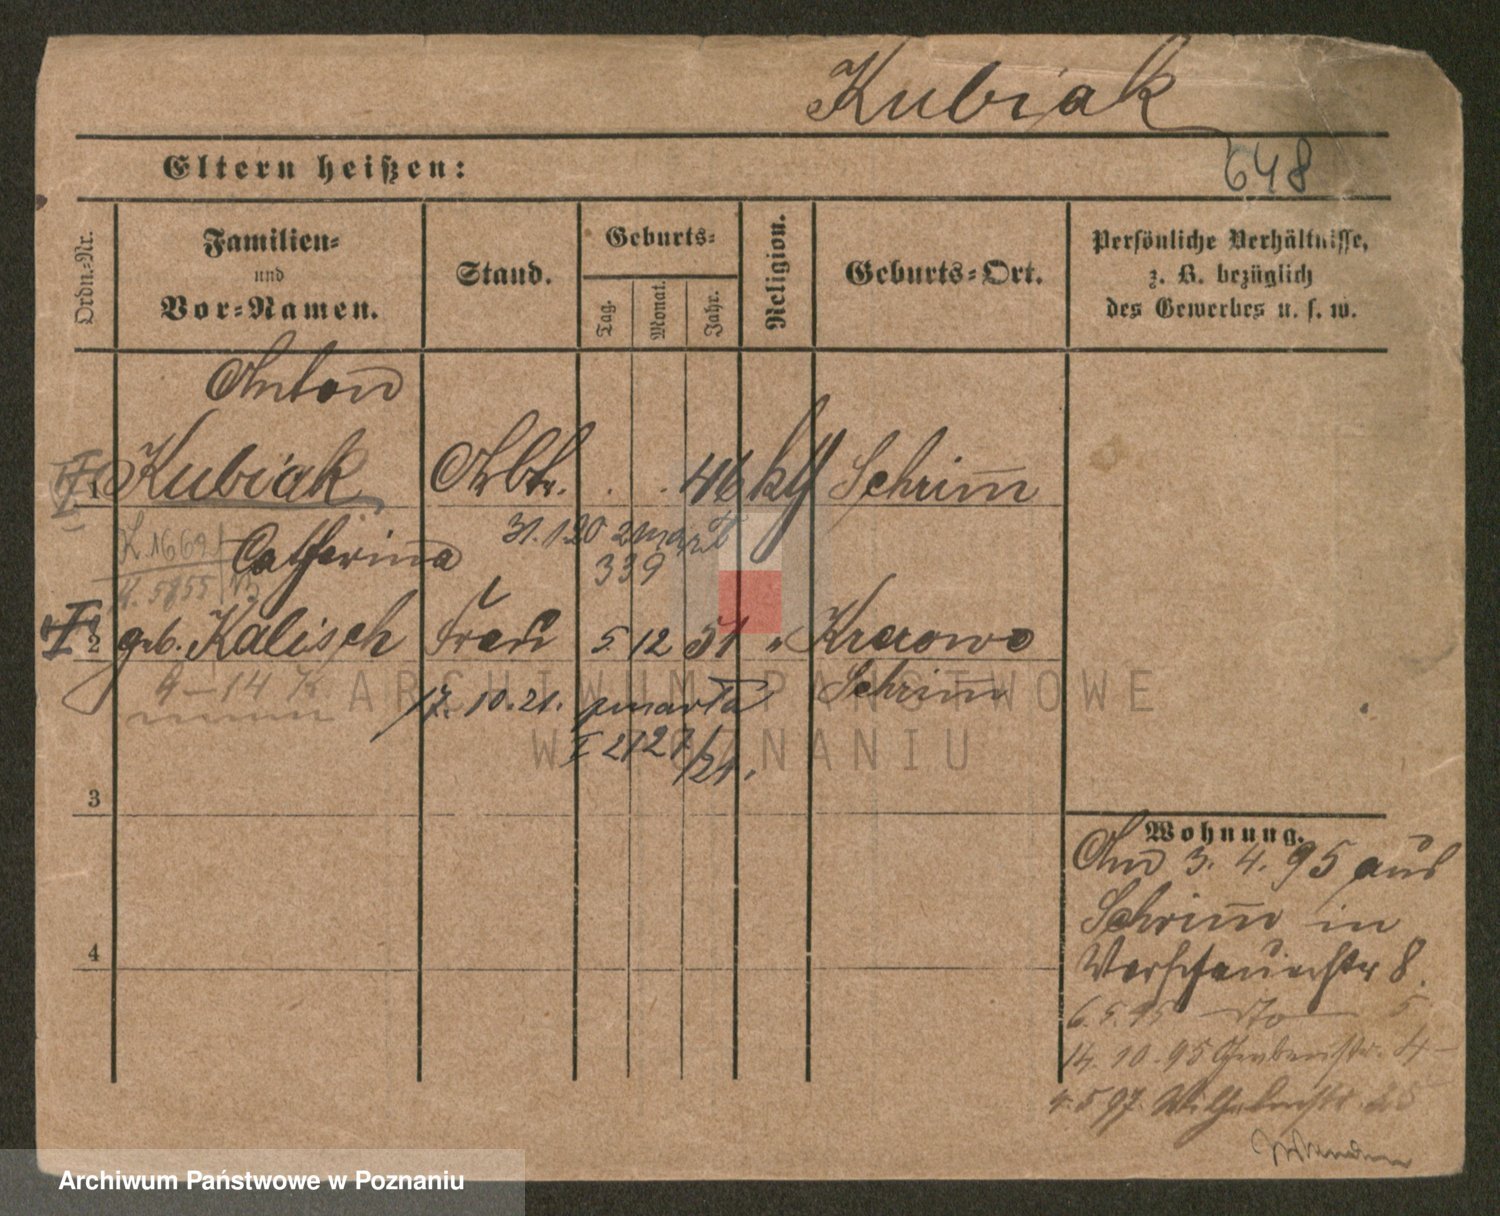 Kubiak
648
Eltern heißen:
Ordn.=Nr.
Familien=
und
Vor=Namen.
Stand.
Geburts=
Tag.
Monat.
Jahr.
Religion.
Geburts=Ort.
Persönliche Verhältnisse,
z. B. bezüglich
des Gewerbes u. s. w.
Anton
1 Kubiak Arbtr. 46 kth Schrimm
K. 1669
Catharina 31.1.20 zmarł
K. 5855 339
2 geb. Kalisch Frau 5. 12 51 "
9-14 K Schrimm
17. 10. 21. zmarła
I 2127/21.
3
4
Wohnung.
An 3. 4. 95 aus
Schrimm in
8.
6. 5. 95 — do — 5
14. 10. 95 Grabenstr. 4
4. 5 97. Wilhelmstr. 25
ARCHIWUM PAŃSTWOWE
W POZNANIU
Archiwum Państwowe w Poznaniu